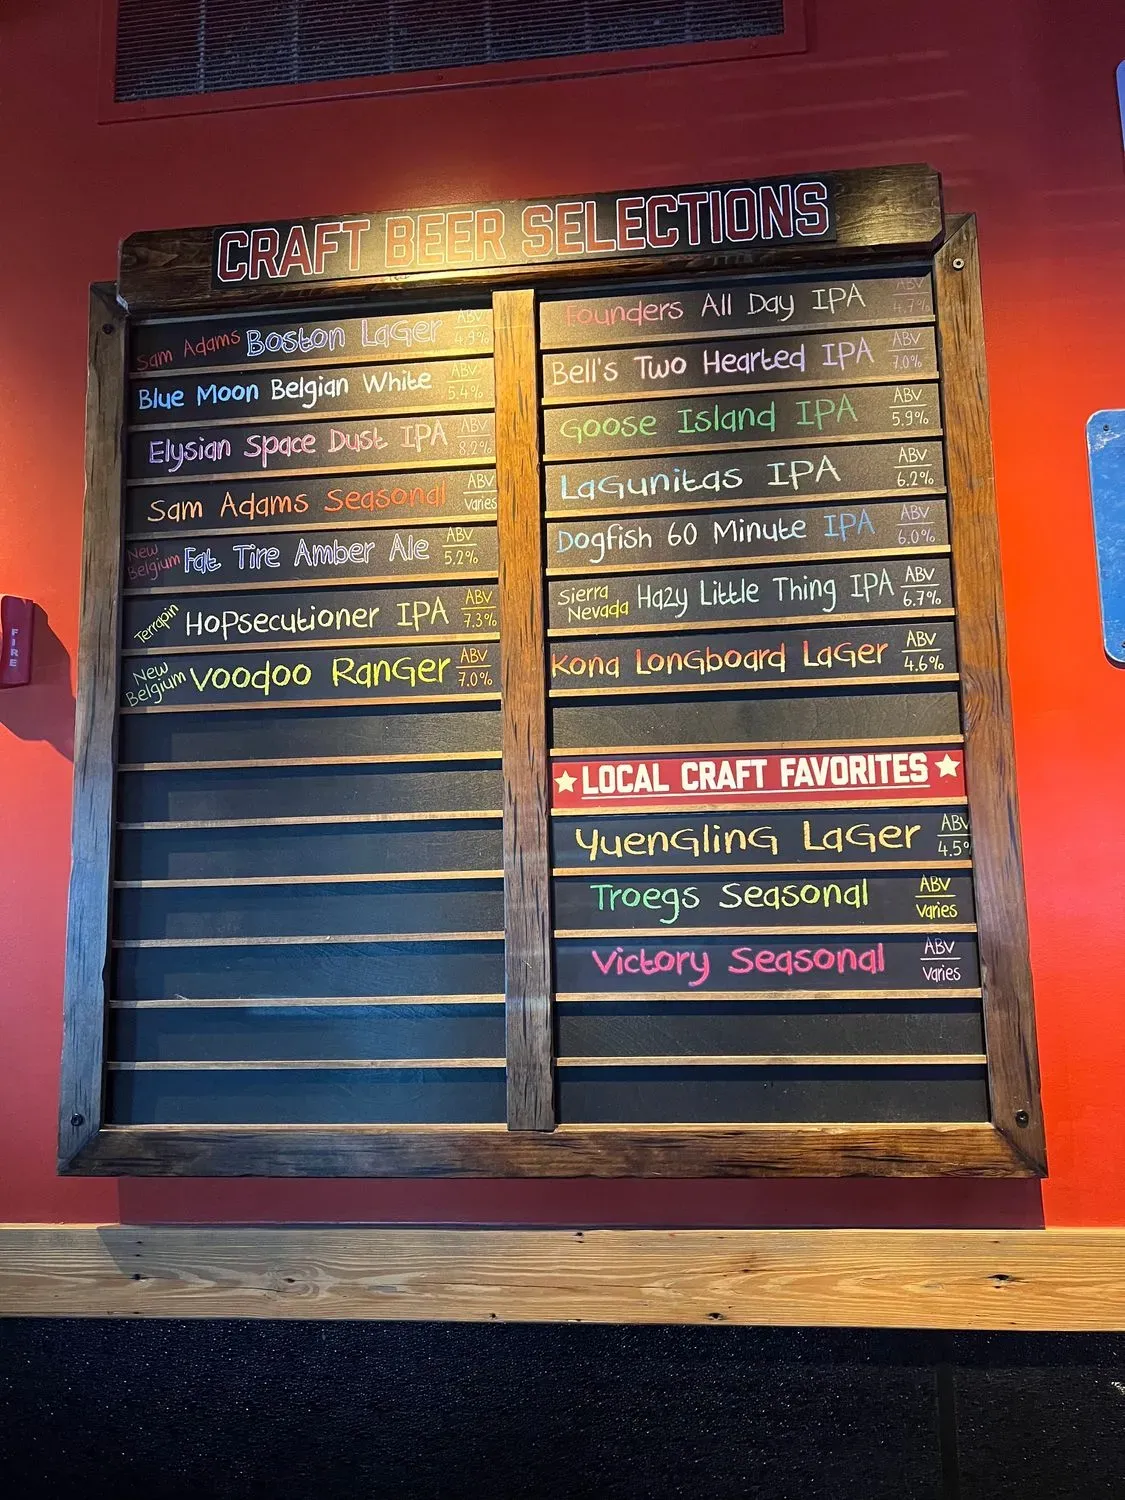 CRAFT BEER SELECTIONS
Sam Adams Boston Lager ABV 4.9%
Blue Moon Belgian White ABV 5.4%
Elysian Space Dust IPA ABV 8.2%
Sam Adams Seasonal ABV varies
New Belgium Fat Tire Amber Ale ABV 5.2%
Terrapin HopSecutioner IPA ABV 7.3%
New Belgium Voodoo Ranger ABV 7.0%
Founders All Day IPA ABV 4.7%
Bell's Two Hearted IPA ABV 7.0%
Goose Island IPA ABV 5.9%
Lagunitas IPA ABV 6.2%
Dogfish 60 Minute IPA ABV 6.0%
Sierra Nevada Hazy Little Thing IPA ABV 6.7%
Kona Longboard Lager ABV 4.6%
LOCAL CRAFT FAVORITES
Yuengling Lager ABV 4.5%
Troegs Seasonal ABV Varies
Victory Seasonal ABV Varies
FIRE